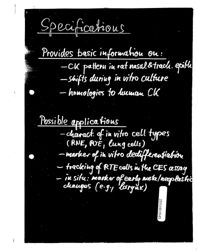 Specifications
Provides basic information on:
– CK pattern in rat nasal & trach. epith.
– shifts during in vitro culture
– homologies to human CK
Possible applications
– charact. of in vitro cell types
(RNE, RTE, lung cells)
– marker of in vitro dedifferentiation
– tracking of RTE cells in the CES assay
– in situ: marker of early meta/neoplastic
changes (e.g., larynx)